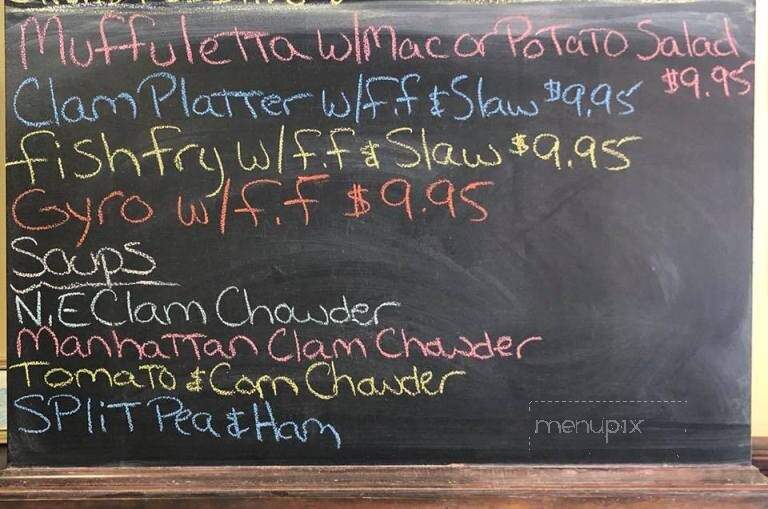 Muffuletta w/Mac or Potato Salad
$9.95
Clam Platter w/f.f & Slaw $9.95
fishfry w/f.f & Slaw $9.95
Gyro w/f.f $9.95
Soups
N.E Clam Chowder
Manhattan Clam Chowder
Tomato & Corn Chowder
Split Pea & Ham
menupix